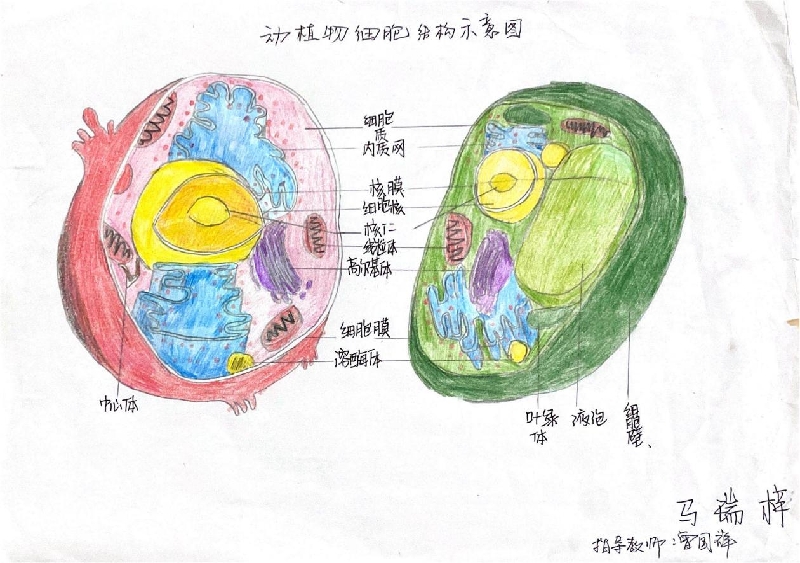 动植物细胞结构示意图
细胞
质
内质网
核膜
细胞核
核仁
线粒体
高尔基体
细胞膜
溶酶体
中心体
叶绿
体
液泡
细胞壁、
马瑞梓
指导教师:曾国祥